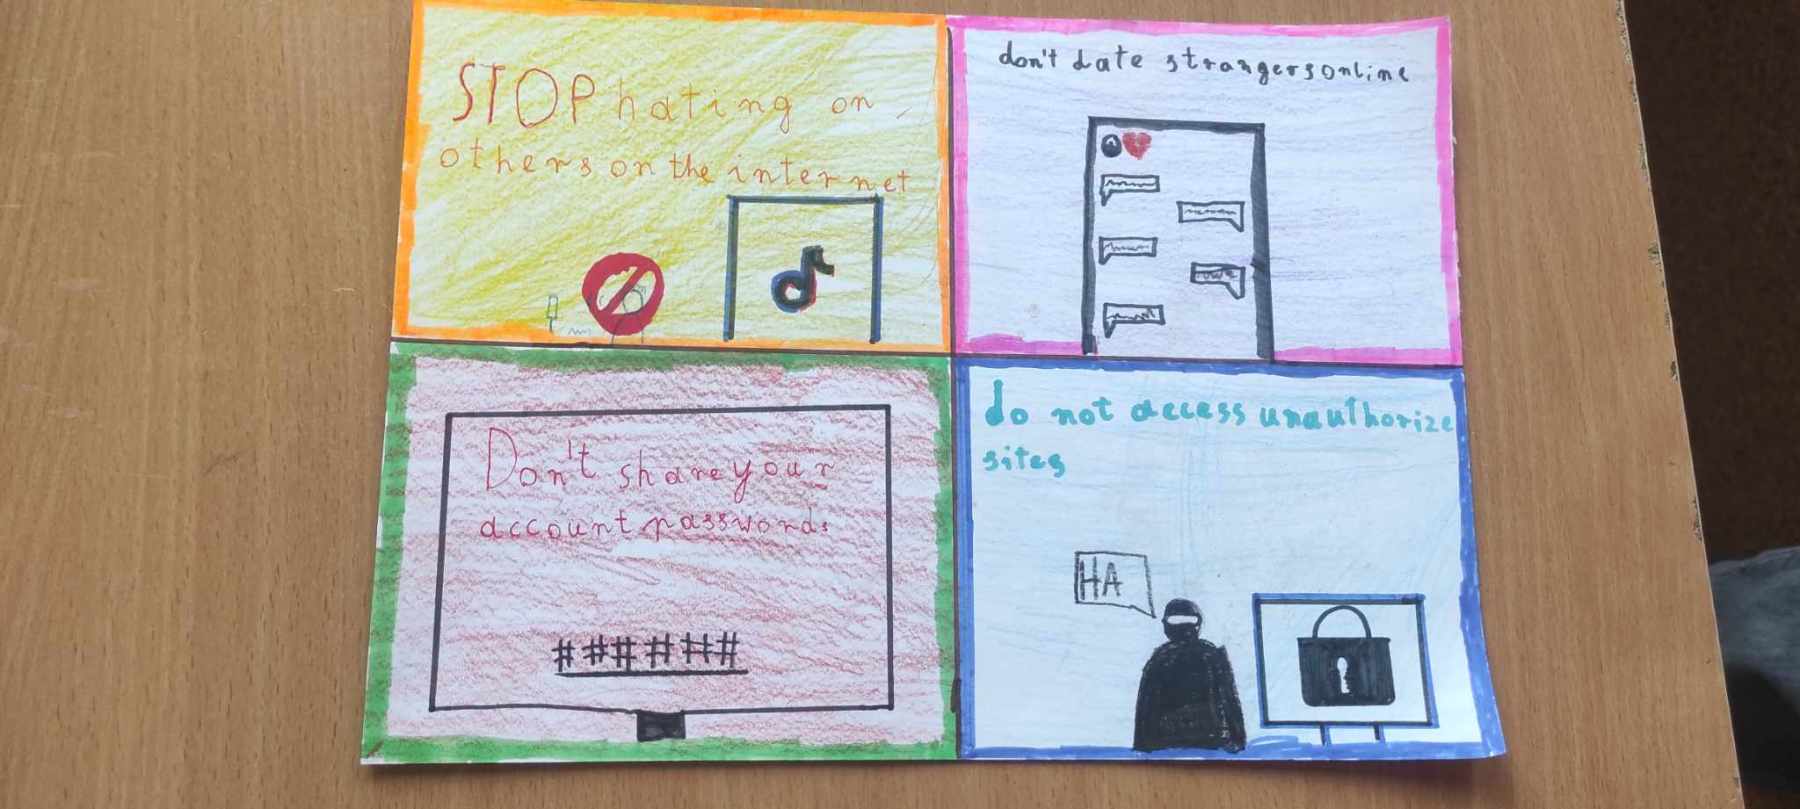 STOP hating on
others on the internet
don't date strangers online
Don't share your
account passwords
######
do not access unauthorize
sites
HA